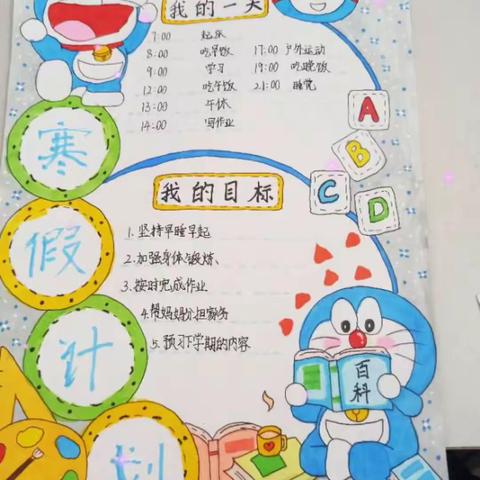 我的一天
7:00 起床
8:00 吃早饭 17:00 户外运动
9:00 学习 19:00 吃晚饭
12:00 吃午饭 21:00 睡觉
13:00 午休
14:00 写作业
寒
假
计
划
A
B
C
D
我的目标
1.坚持早睡早起
2.加强身体锻炼、
3.按时完成作业
4.帮妈妈分担家务
5.预习下学期的内容
百科